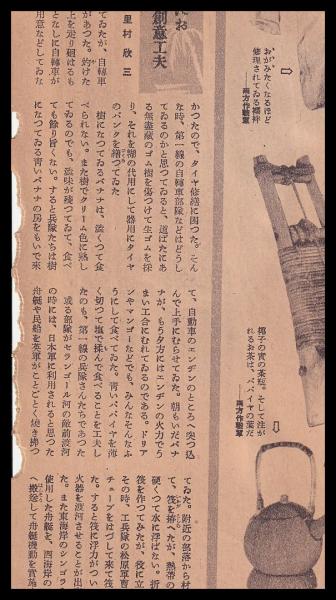 にお
創意工夫
里村欣三
おがみたくなるほど
修理されてゐる襦袢
―南方作戰軍
椰子の實の茶瓶。そして注が
れるお茶は、パパイヤの葉だ
―南方作戰軍
てゐたが、自轉車
があつた。灼けた
上を走り廻はるも
となしに自轉車が
用意などしてゐな
かつたので、タイヤ修繕に困つた。そん
な時、第一線の自轉車部隊などはどうし
てゐるのかと思つてゐると、道ばたにあ
る無盡藏のゴム樹を傷つけて生ゴムを採
り、それを糊の代用にして器用にタイヤ
のパンクを繕つてゐた
樹になつてゐるバナナは、澁くつて食
べられない。また樹でクリーム色に熟し
てゐるのでも、澁味が殘つてゐて、食べ
ても餘り旨くない。すると兵隊たちは樹
になつてゐる青いバナナの房をもいで來
て、自動車のエンヂンのところへ突つ込
んで上手にむらせてゐた。朝もいだバナ
ナが、もう夕方にはエンヂンの火力でう
まい工合にむれてゐるのである。ドリア
ンやマンゴーなどでも、みんなそんなふ
うにして食べてゐた。青いパパイヤを薄
く切つて鹽で揉んで食べることを工夫し
たのも、第一線の兵隊さんたちであつた
或る部隊がセランゴール河の敵前渡河
の時には、日本軍に利用されると思つた
舟艇や民船を英軍がことごとく燒き拂つ
てゐた。附近の部落から材
て、筏を拵へたが、熱帶の
硬くつて水に浮ばない。折
筏を作つてみたが、役に立
その時、工兵隊の松原軍曹
チューブをはづして來て筏
た。すると筏に浮力がつい
火器を渡河させることが出
た。また東海岸のシンゴラ
使用した舟艇を、西海岸の
へ搬送して舟艇機動を實施